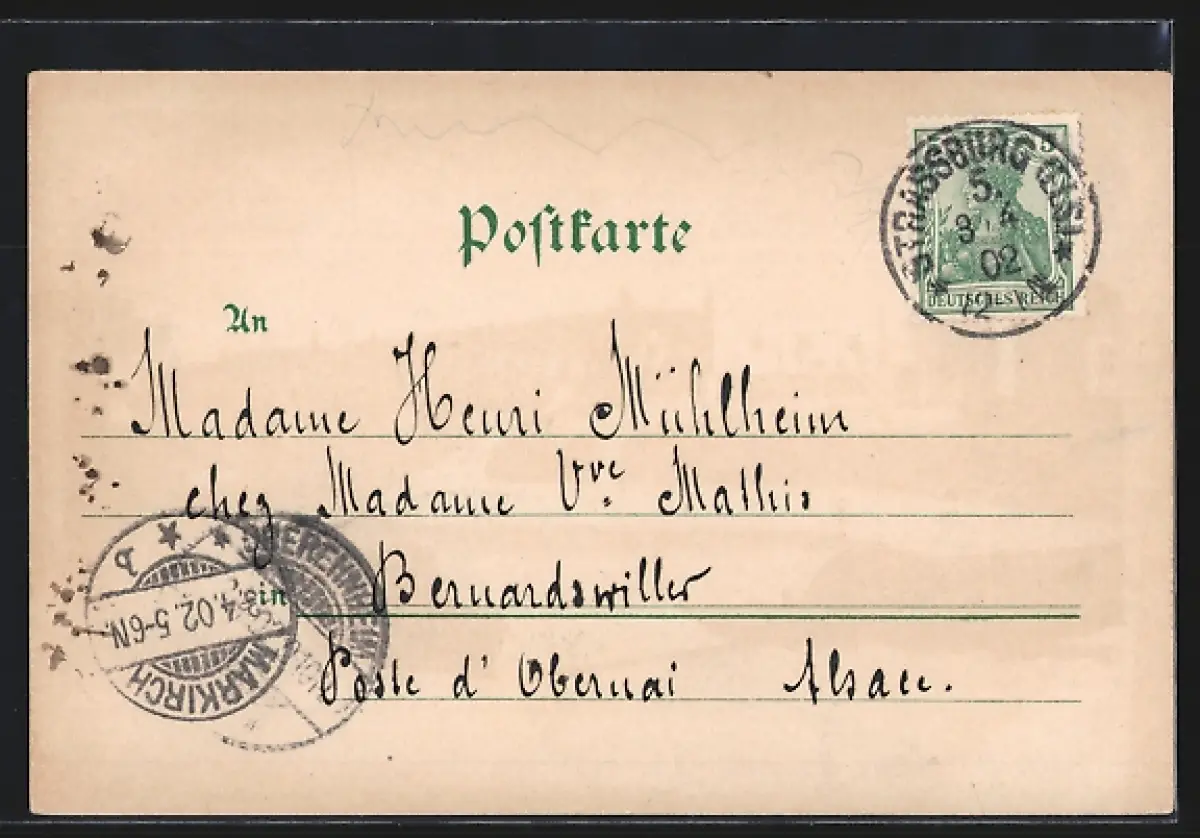 STRASSBURG (ELS)
5.
3 4
02
12 N
5
DEUTSCHES REICH
Postkarte
An
Madame Henri Mühlheim
chez Madame Vve Mathis
in Bernardswiller
Poste d'Obernai Alsace.
MARKIRCH
3.4.02.5-6N.
b
OBEREHNHEIM